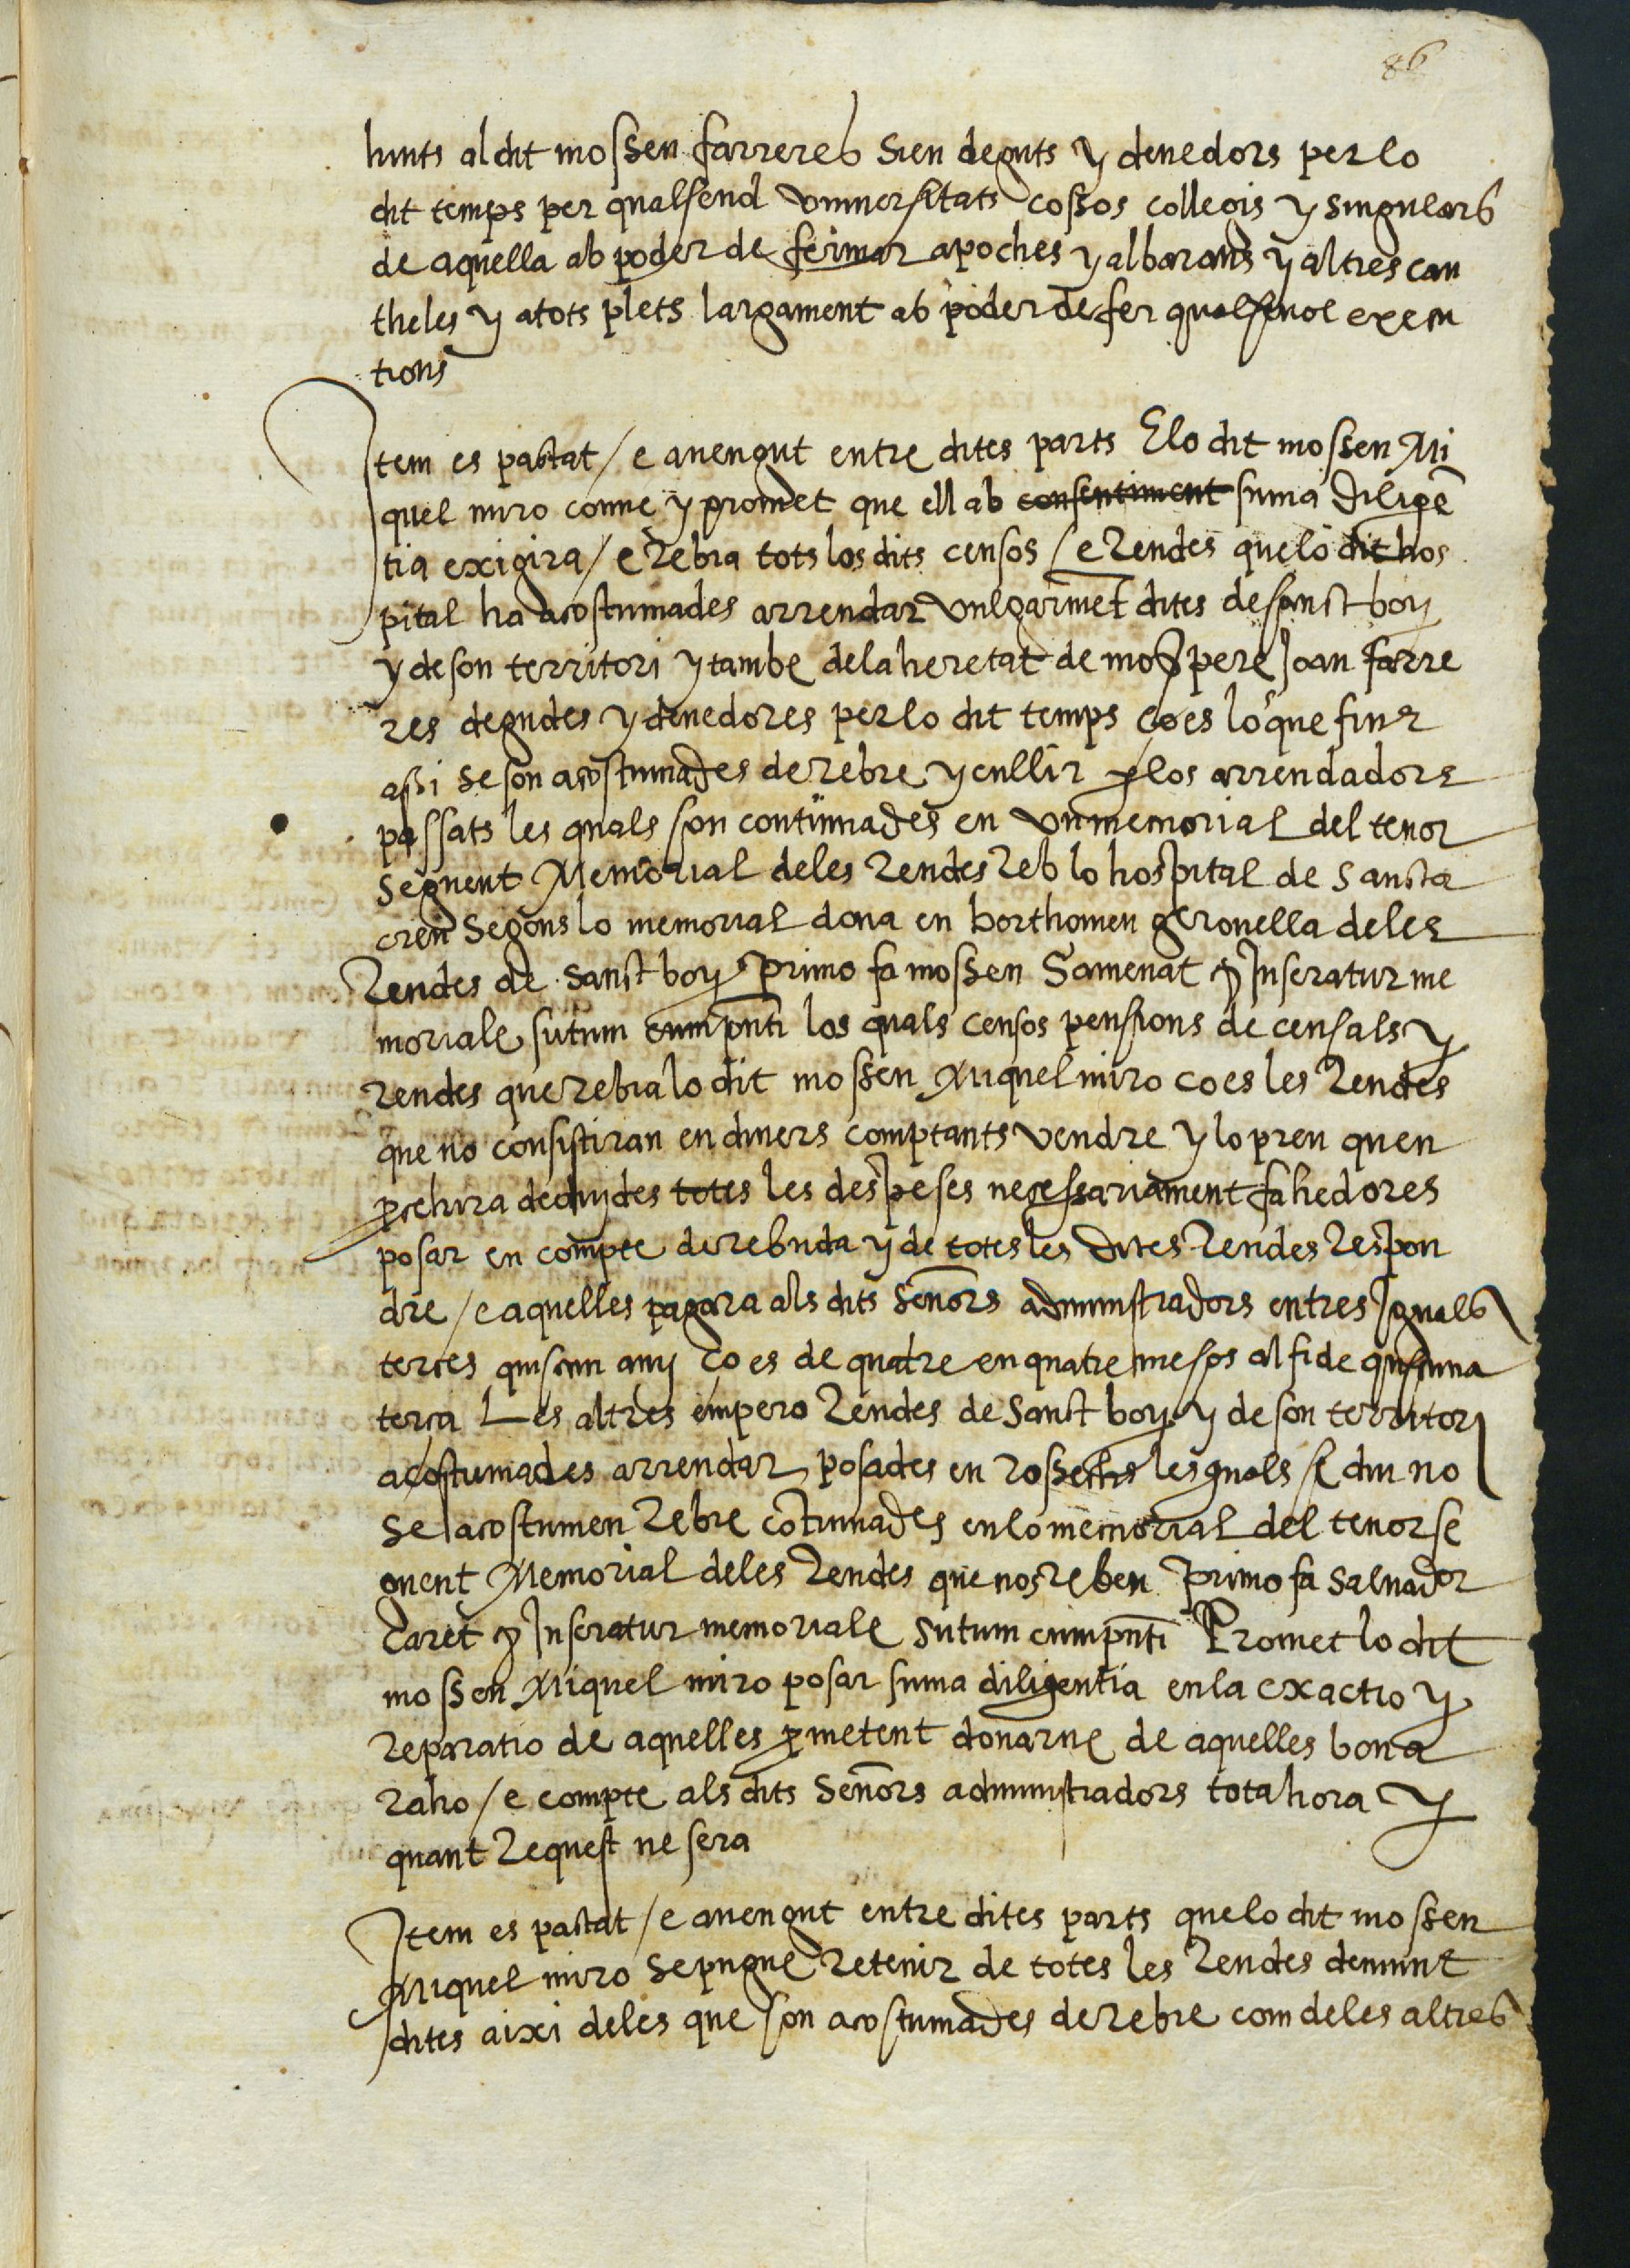 86
hints al dit mossen farreres sien deguts y devedors per lo
dit temps per qualsevol universitats cossos collegis y singulars
de aquella ab poder de fermar apoches y albarans y altres cau
theles y a tots plets largament ab poder de fer qualsevol execu
tions
Item es pactat / e avengut entre dites parts E lo dit mossen Mi
quel miro conve y promet que ell ab consentiment suma diligē
tia exigira / e rebra tots los dits censos / e rendes que lo dit hos
pital ha acostumades arrendar vulgarmēt dites de sanct boy
y de son territori y tambe de la heretat de moss pere Joan farre
res degudes y devedores per lo dit temps ço es lo que fins
assi se son acostumades de rebre y cullir p los arrendadors
passats les quals son continuades en un memorial del tenor
seguent Memorial de les rendes reb lo hospital de sancta
creu segons lo memorial dona en borthomeu geronella de les
rendes de sanct boy Primo fa mossen Samenat &c Inseratur me
moriale sutum cum pnti los quals censos pensions de censals y
rendes que rebra lo dit mossen Miquel miro ço es les rendes
que no consistiran en diners comptants vendre y lo preu quen
pcehira deduydes totes les despeses necessariament fahedores
posar en compte de rebuda y de totes les dites rendes respon
dre / e aquelles pagara als dits Senōrs administradors en tres Iguals
terces quiscun any ço es de quatre en quatre mesos al fi de quiscuna
terça Les altres empero rendes de Sanct boy y de son territori
acostumades arrendar posades en rossechs les quals se diu no
se acostumen rebre cōtinuades en lo memorial del tenor se
guent Memorial de les rendes que nos reben Primo fa salvador
Caret &c Inseratur memoriale sutum cum pnti Promet lo dit
mossen Miquel miro posar suma diligentia en la exactio y
reparatio de aquelles pmetent donarne de aquelles bona
raho / e compte als dits Senōrs administradors tota hora y
quant request ne sera
Item es pactat / e avengut entre dites parts que lo dit mossen
Miquel miro se pugue retenir de totes les rendes demunt
dites aixi de les que son acostumades de rebre com de les altres